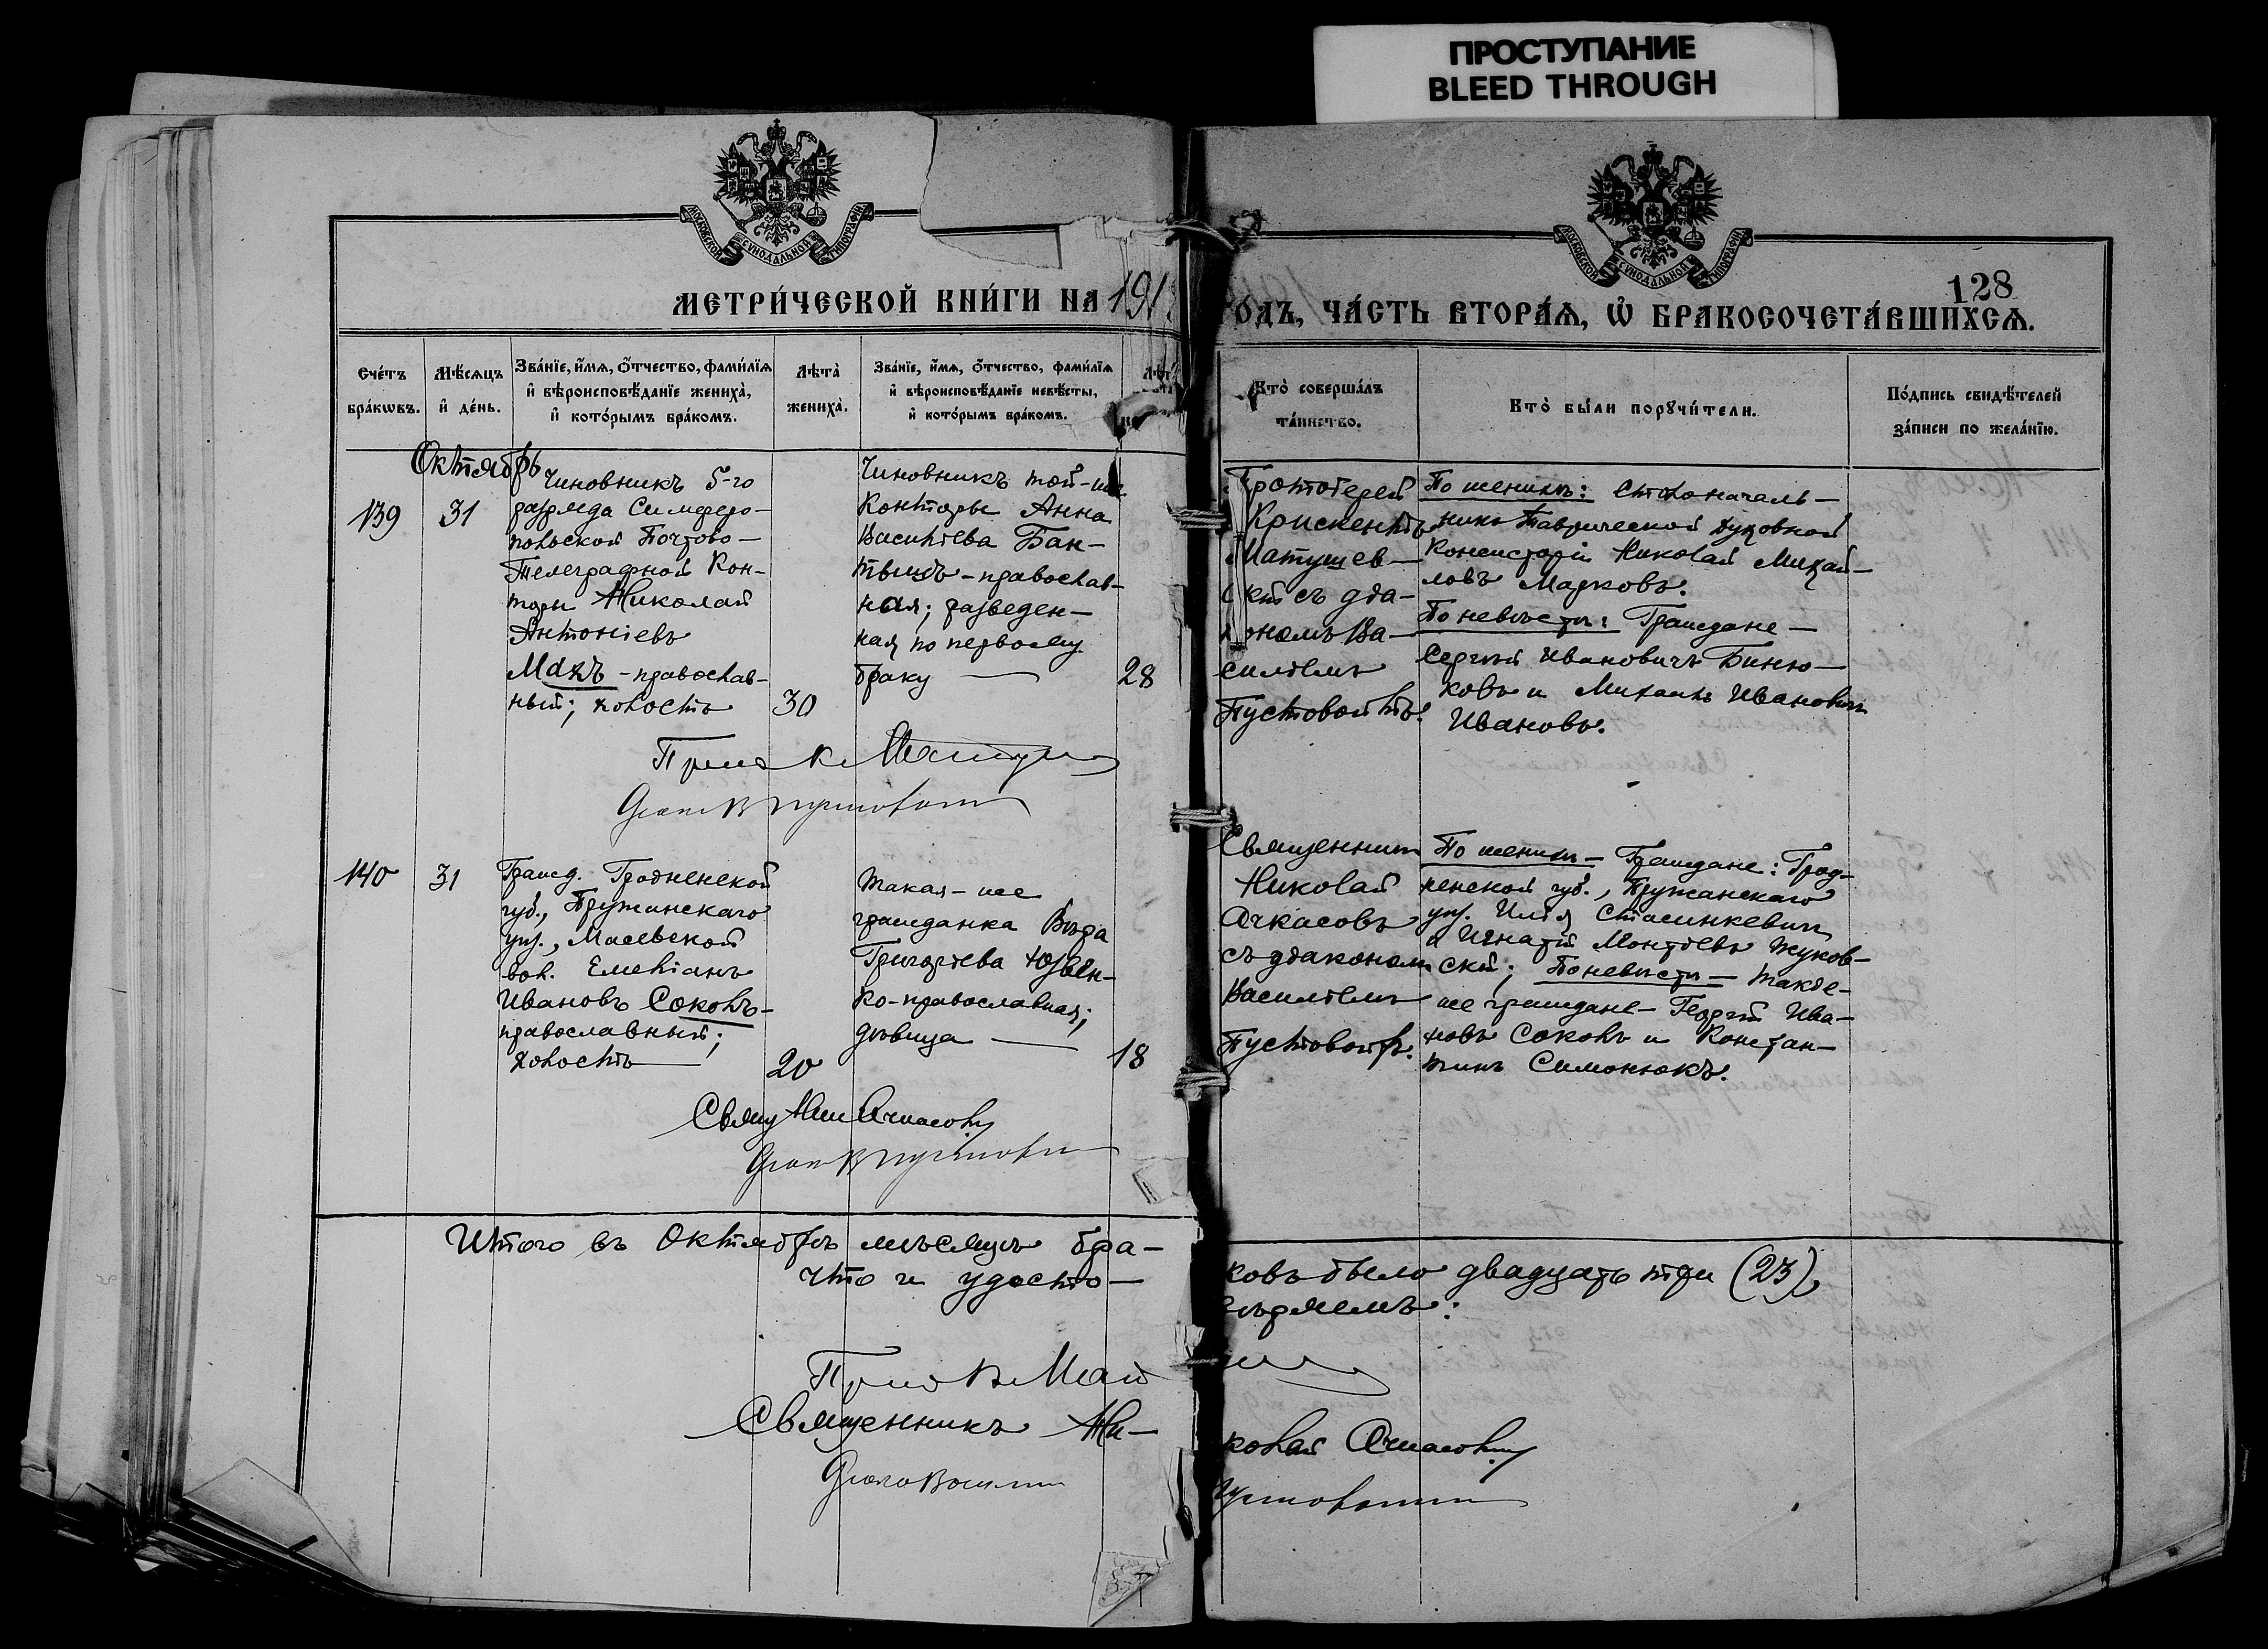 ПРОСТУПАНИЕ
BLEED THROUGH
МОСКОВСКОЙ СѴНОДАЛЬНОЙ ТИПОГРАФІИ
МОСКОВСКОЙ СѴНОДАЛЬНОЙ ТИПОГРАФІИ
128
МЕТРИ́ЧЕСКОЙ КНИ́ГИ НА 191
ОДЪ, ЧА́СТЬ ВТОРА́Ѧ, Ѿ БРАКОСОЧЕТА́ВШИХСѦ.
Сче́тъ бра́кѡвъ.
Мѣ́сѧцъ и҆ де́нь.
Зва́нїе, и҆́мѧ, ѻ҆́тчество, фами́лїѧ
и҆ вѣроисповѣ́данїе жениха̀,
и҆ кото́рымъ бра́комъ.
Лѣта̀ жениха̀.
Зва́нїе, и҆́мѧ, ѻ҆́тчество, фами́лїѧ
и҆ вѣроисповѣ́данїе невѣ́сты,
и҆ кото́рымъ бра́комъ.
Кто̀ соверша́лъ
та́инство.
Кто̀ бы́ли порꙋчи́тели.
По́дпись свидѣ́телей
за́писи по жела́нїю.
Октябрь
139
31
Чиновникъ 5-го
разряда Симферо-
польской Почтово-
Телеграфной Кон-
торы Николай
Антоніевъ
Макъ - православ-
ный; холостъ
30
Чиновникъ той-же
Конторы Анна
Васильева Бан-
тышъ - православ-
ная; разведен-
ная по первому
браку
28
Протоіерей
Крискентъ
Матушев-
скій съ діа-
кономъ Ва-
силіемъ
Пустовойтъ.
По женихѣ: Столоначаль-
никъ Таврической Духовной
Консисторіи Николай Михай-
ловъ Марковъ.
По невѣстѣ: Граждане -
Сергѣй Ивановичъ Биню-
ковъ и Михаилъ Ивановичъ
Ивановъ.
140
31
Гражд. Гродненской
губ., Пружанскаго
уѣз., Масевской
вол. Емеліанъ
Ивановъ Соколъ -
православный;
холостъ
20
Такая-же
гражданка Вѣра
Григоріева Юзвен-
ко - православная;
дѣвица
18
Священникъ
Николай
Ачкасовъ
съ діакономъ
Василіемъ
Пустовойтъ.
По женихѣ - Граждане: Грод-
ненской губ., Пружанскаго
уѣз. Илія Стасинкевичъ
и Игнатій Монтіевъ Жуков-
скій; По невѣстѣ - такіе-
же граждане - Георгій Ива-
новъ Соколъ и Констан-
тинъ Симонюкъ.
Свящ Ник Ачкасовъ
Итого въ Октябрѣ мѣсяцѣ бра-
ковъ было двадцать три (23),
что и удосто-
вѣряемъ:
Священникъ Ни-
колай Ачкасовъ